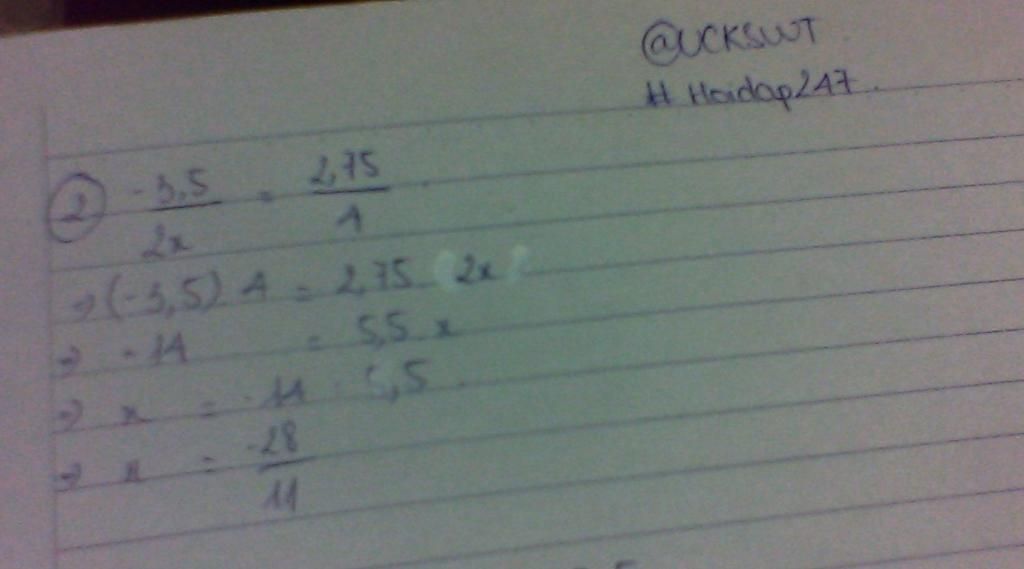 @UCKSWT
# Hoidap247
② -3,5/2x = 2,75/4
=> (-3,5).4 = 2,75 (2x)
=> -14 = 5,5 x
=> x = -14 : 5,5
=> x = -28/11